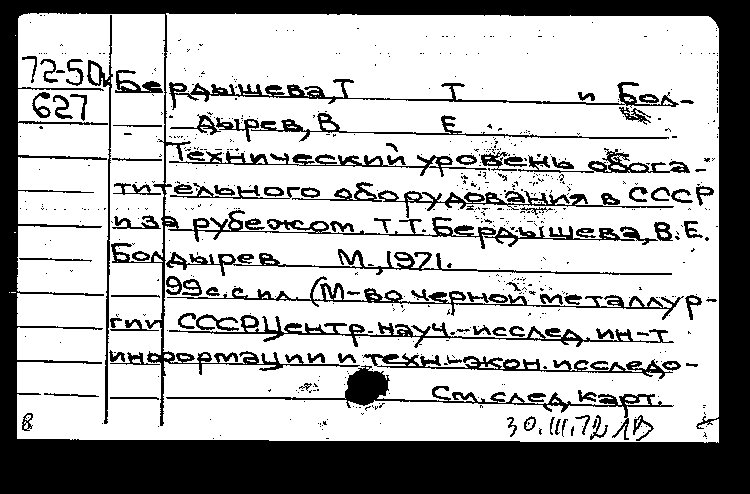 72-50 Бердышева, Т Т и Бол-
627 дырев, В Е
Технический уровень обога-
тительного оборудования в СССР
и за рубежом. Т.Т. Бердышева, В.Е.
Болдырев М., 1971.
99 с. с ил. (М-во черной металлур-
гии СССР. Центр. науч.-исслед. ин-т
информации и техн.-экон. исследо-
См. след. карт.
в 30.III.72